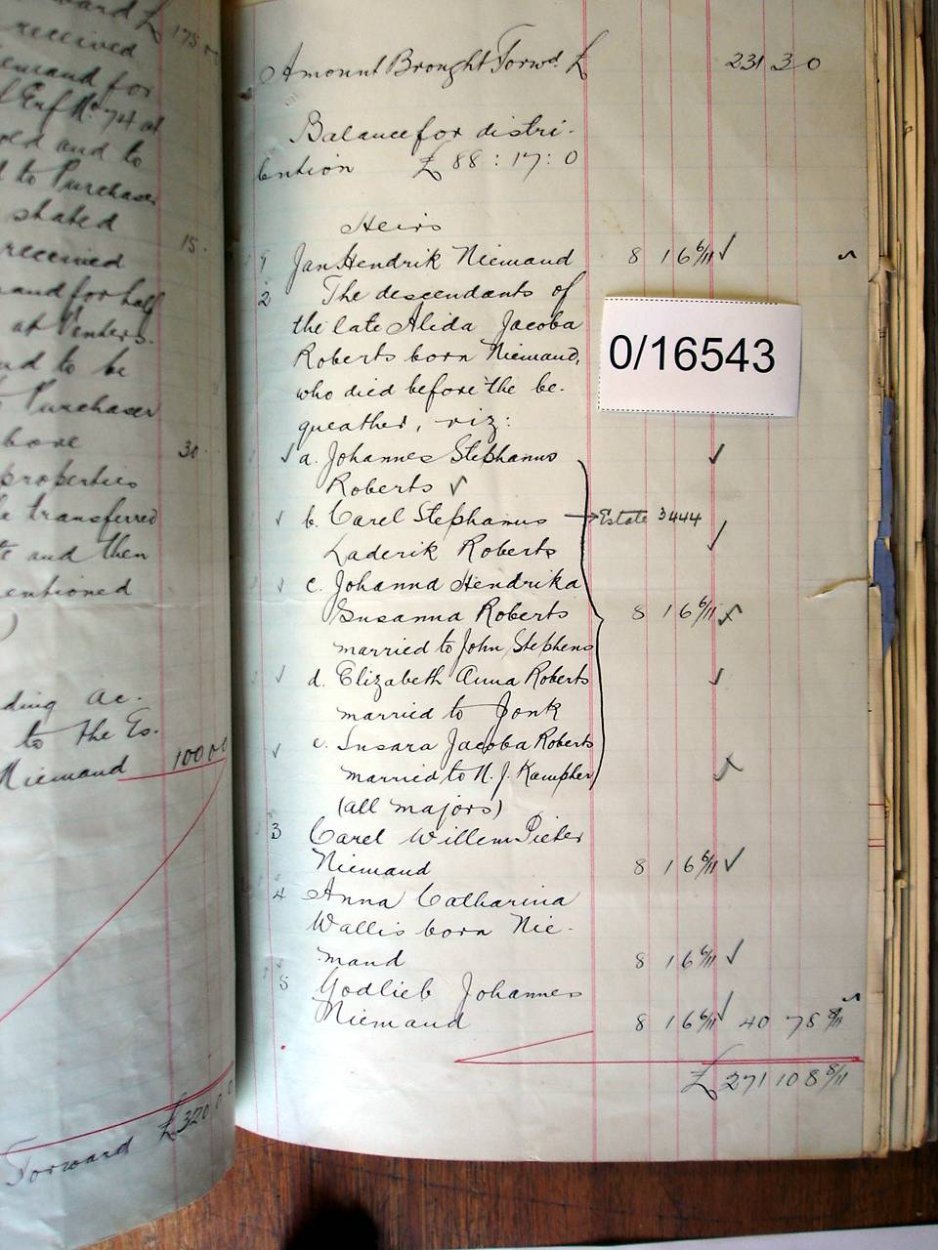 ward £ 175
received
emand for
f Erf No. 74 at
old and to
d to Purchaser
stated 15.
received
and for half
at Venters.
nd to be
Purchaser
bove 30.
properties
transferred
te and then
entioned
)
ding ac.
to the Es.
Niemand 100 0 0
Forward £320 0 0
Amount Brought Forwd. £ 231 3 0
Balance for distri.
bution £ 88 : 17 : 0
Heirs
1 Jan Hendrik Niemand 8 1 6 6/11 ✓
2 The descendants of
the late Alida Jacoba
Roberts born Niemand,
who died before the be.
queather, viz:
✓ a. Johannes Stephanus ✓
Roberts ✓
✓ b. Carel Stephanus → Estate 3444
Laderik Roberts ✓
✓ c. Johanna Hendrika
Susanna Roberts 8 1 6 6/11 ✓
married to John Stephens
✓ d. Elizabeth Anna Roberts ✓
married to Jonk
✓ e. Susara Jacoba Roberts
married to N. J. Kampher ✓
(all majors)
3 Carel Willem Pieter
Niemand 8 1 6 6/11 ✓
4 Anna Catharina
Wallis born Nie.
mand 8 1 6 6/11 ✓
5 Godlieb Johannes
Niemand 8 1 6 6/11 ✓ 40 7 8 8/11
£ 271 10 8 8/11
0/16543